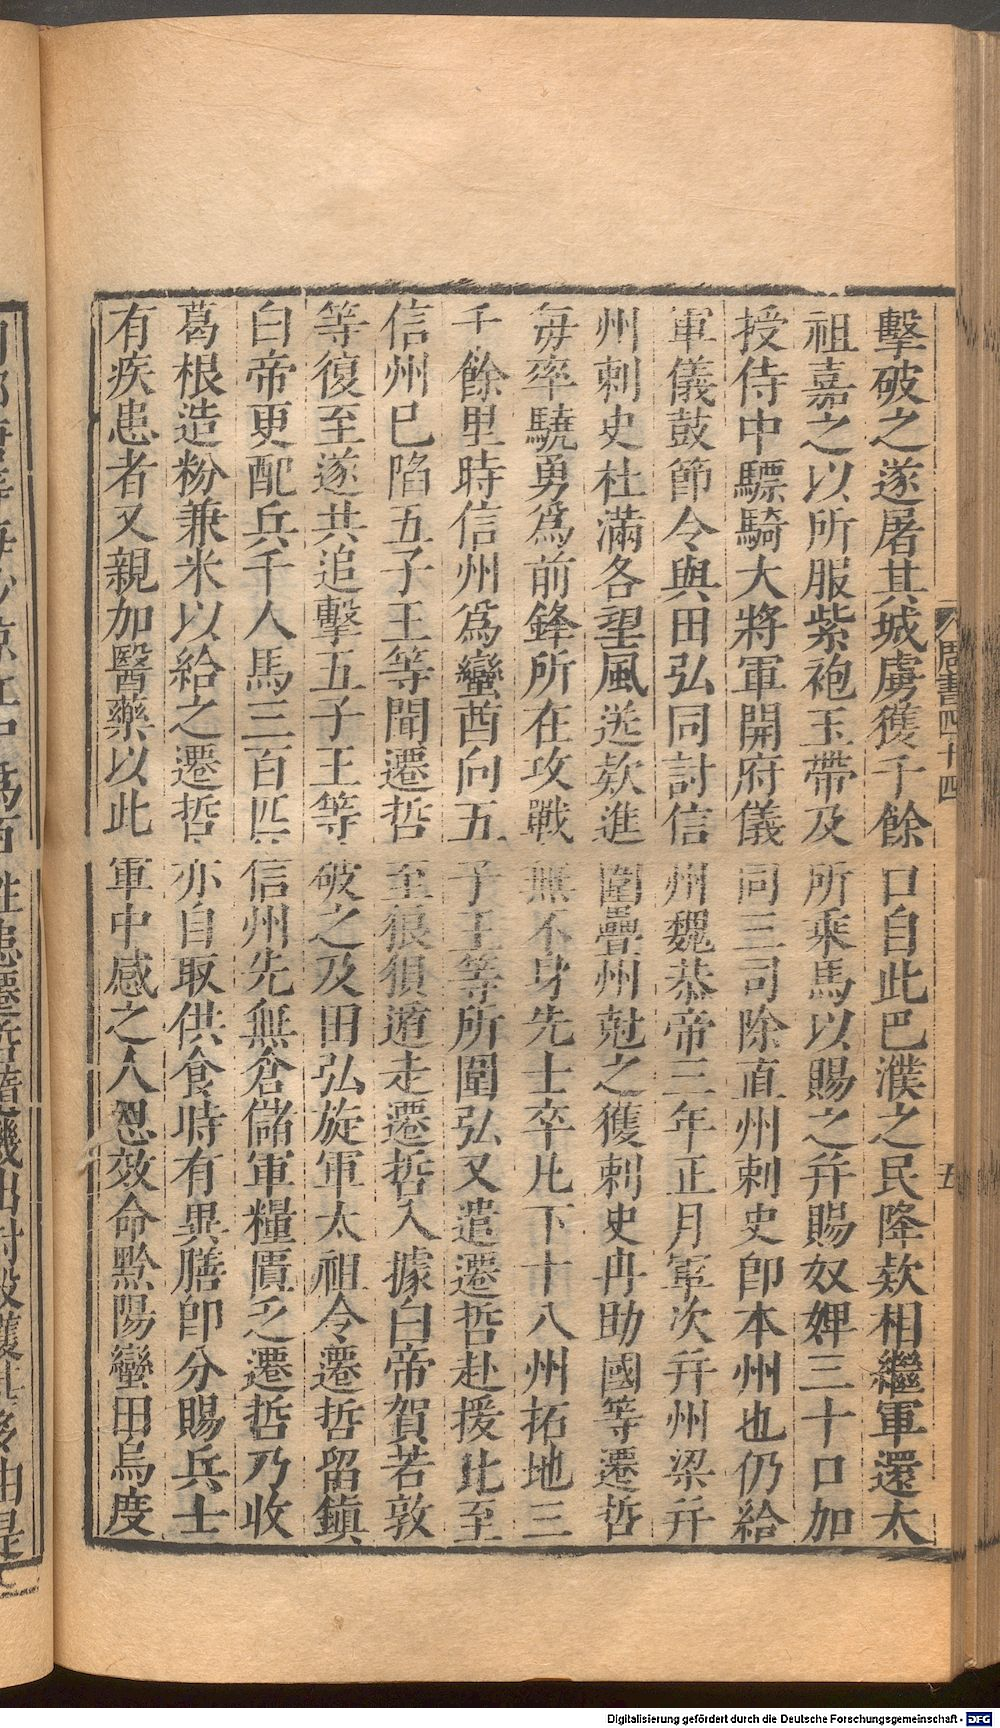 擊破之遂屠其城虜獲千餘口自此巴濮之民降欵相繼軍還太
祖嘉之以所服紫袍玉帶及所乘馬以賜之并賜奴婢三十口加
授侍中驃騎大將軍開府儀同三司除直州刺史即本州也仍給
軍儀鼓節令與田弘同討信州魏恭帝三年正月軍次并州梁并
州刺史杜滿各望風送欵進圍疊州尅之獲刺史冉助國等遷哲
每率驍勇爲前鋒所在攻戰無不身先士卒凡下十八州拓地三
千餘里時信州爲蠻酋向五子王等所圍弘又遣遷哲赴援比至
信州已陷五子王等聞遷哲至狼狽遁走遷哲入據白帝賀若敦
等復至遂共追擊五子王等破之及田弘旋軍太祖令遷哲留鎮
白帝更配兵千人馬三百匹信州先無倉儲軍糧匱乏遷哲乃收
葛根造粉兼米以給之遷哲亦自取供食時有異膳即分賜兵士
有疾患者又親加醫藥以此軍中感之人思效命黔陽蠻田烏度
周書四十四
五
Digitalisierung gefördert durch die Deutsche Forschungsgemeinschaft - DFG